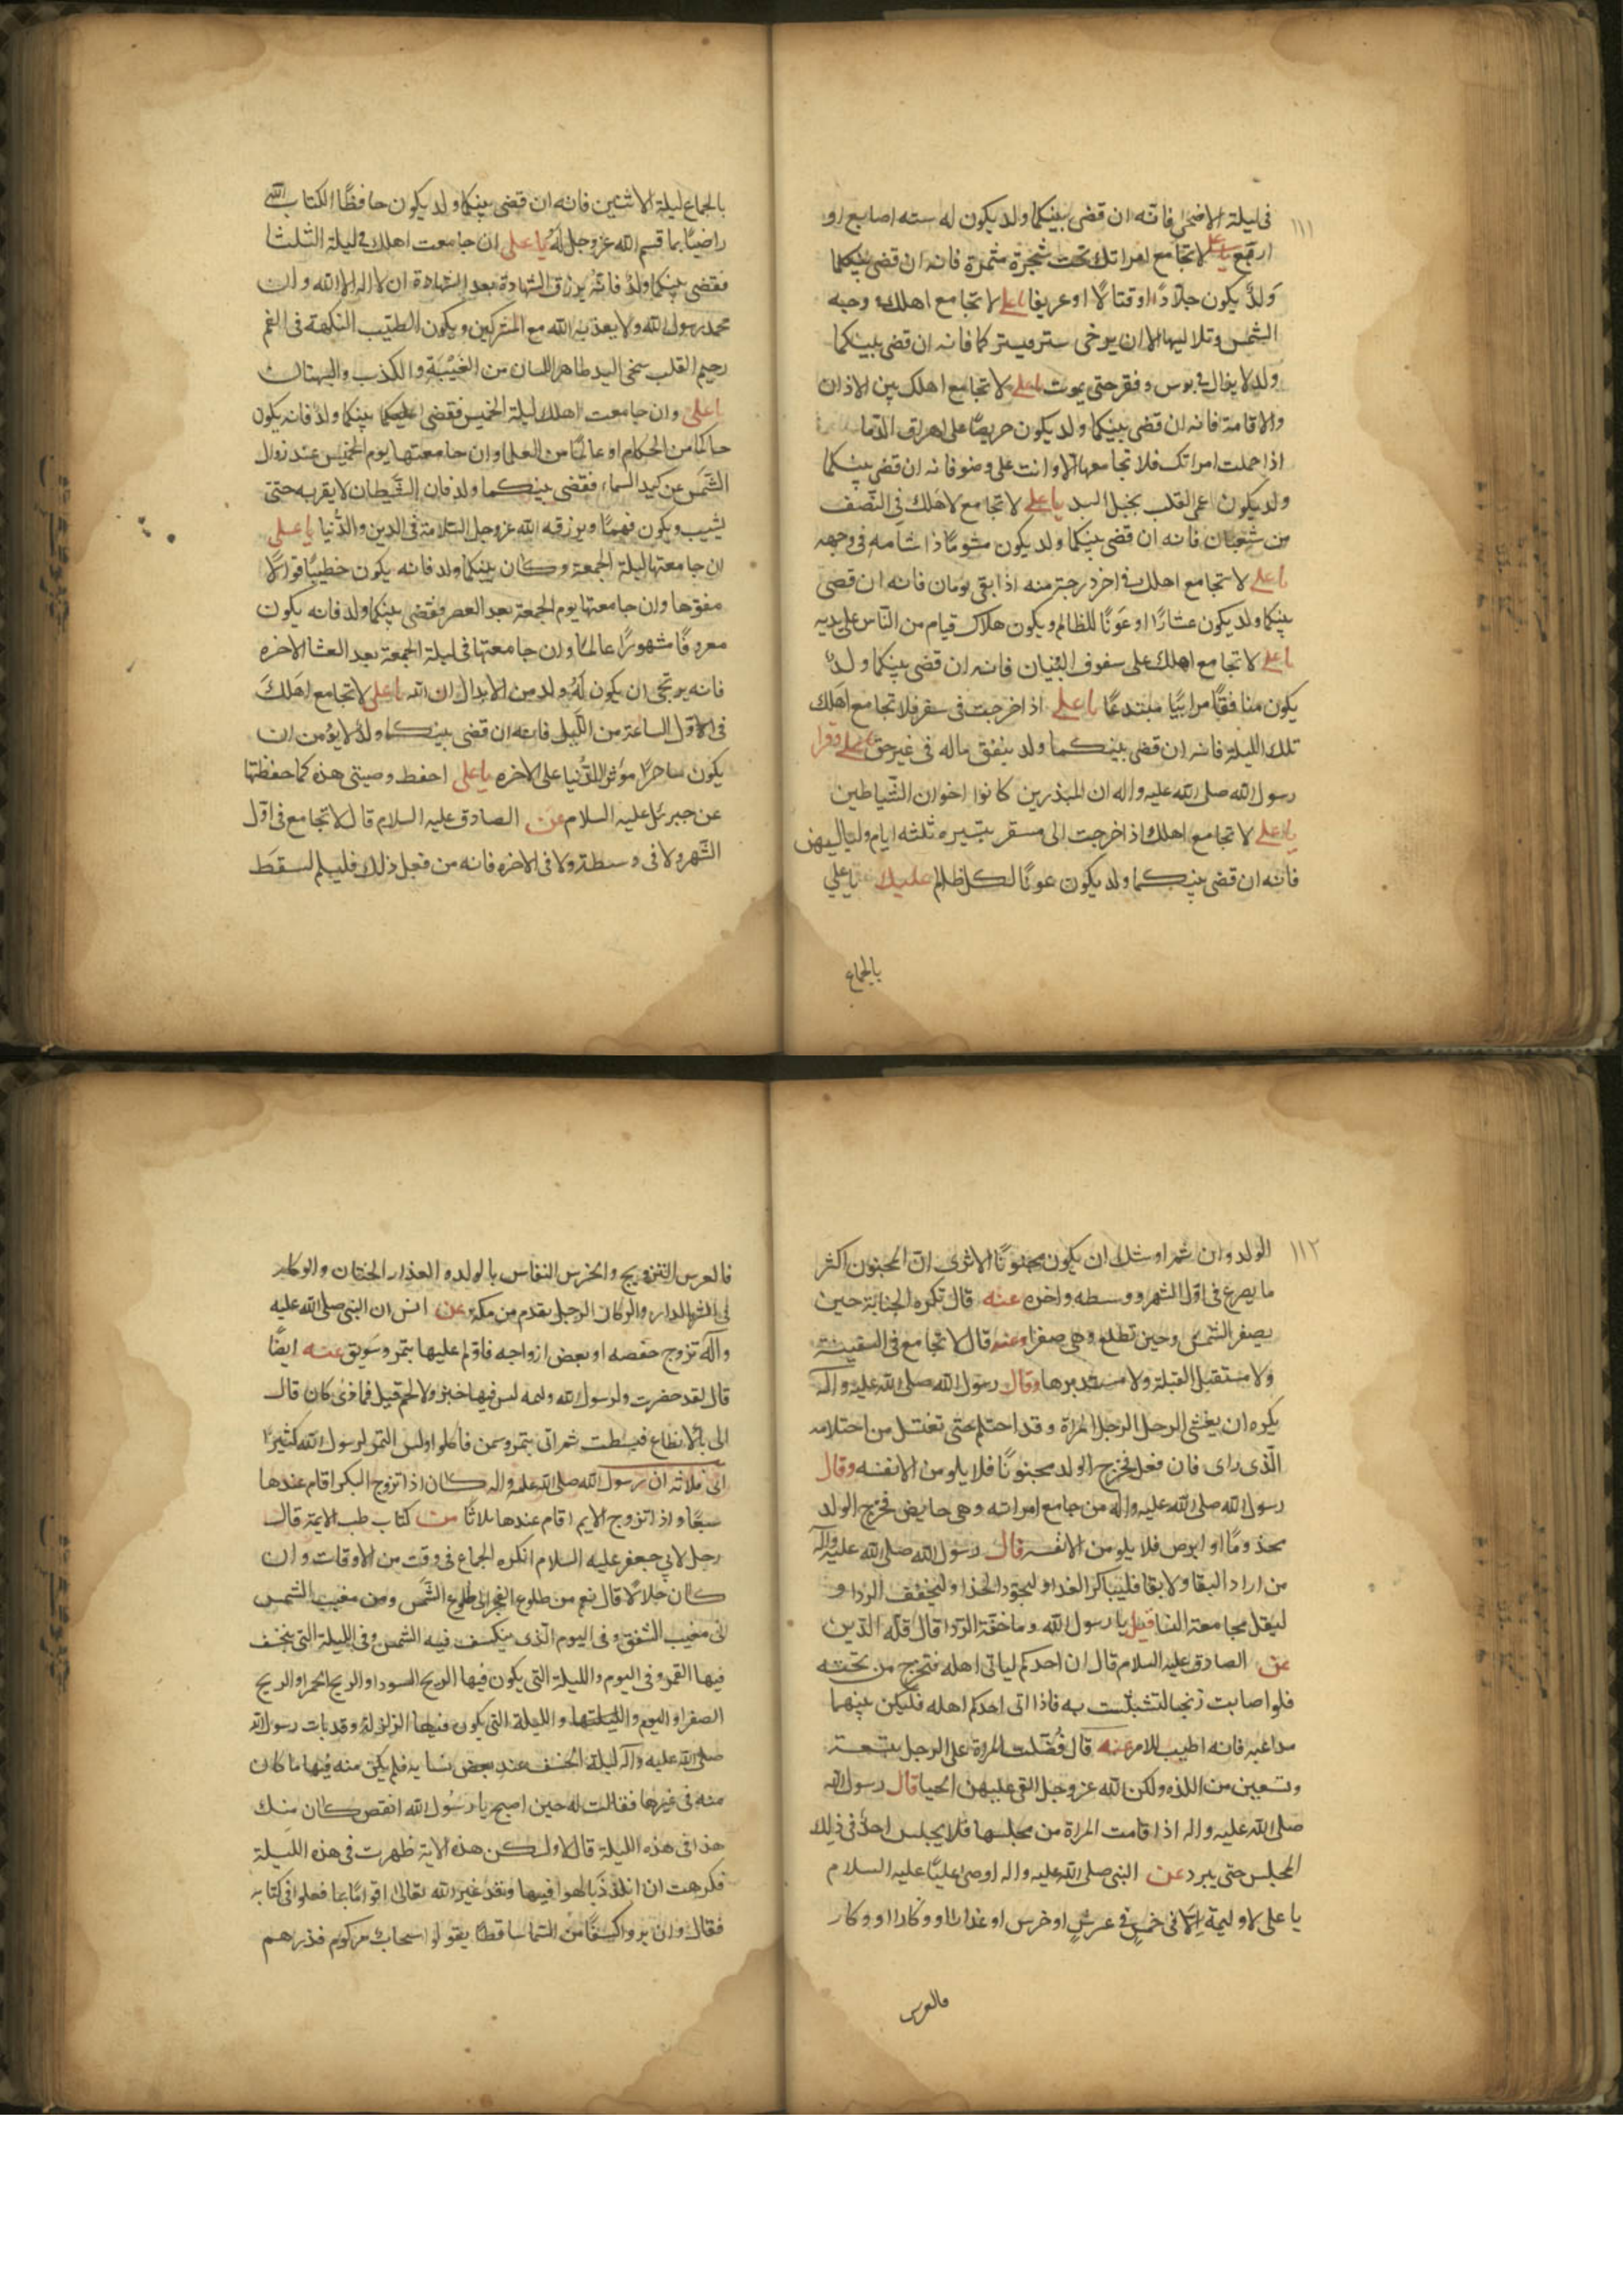 ١١١
فى ليلة الاضحى فانه ان قضى بينكما ولد يكون له سته اصابع او
اربع يا على لا تجامع امراتك تحت شجرة مثمرة فانه ان قضى بينكما
ولد يكون جلادا او قتالا او عريفا يا على لا تجامع اهلك فى وجه
الشمس وتلاليها الا ان يرخى ستر فيستركما فانه ان قضى بينكما
ولد لا يزال فى بوس وفقر حتى يموت يا على لا تجامع اهلك بين الاذان
والاقامة فانه ان قضى بينكما ولد يكون حريصا على اهراق الدما
اذا حملت امراتك فلا تجامعها الا وانت على وضو فانه ان قضى بينكما
ولد يكون اعمى القلب بخيل اليد يا على لا تجامع لاهلك فى النصف
من شعبان فانه ان قضى بينكما ولد يكون مشوما ذا شامه فى وجهه
يا على لا تجامع اهلك فى اخر درجة منه اذا بقى يومان فانه ان قضى
بينكما ولد يكون عشارا او عونا للظالم ويكون هلاك قيام من الناس على يديه
يا على لا تجامع اهلك على سقوف البنيان فانه ان قضى بينكما ولد
يكون منافقا مرائيا مبتدعا يا على اذا خرجت فى سفر فلا تجامع اهلك
تلك الليلة فانه ان قضى بينكما ولد ينفق ماله فى غير حق وقرا
رسول الله صلى الله عليه واله ان المبذرين كانوا اخوان الشياطين
يا على لا تجامع اهلك اذا خرجت الى مسفر مسيره ثلثه ايام ولياليهن
فانه ان قضى بينكما ولد يكون عونا لكل ظالم عليك يا على
بالجماع
بالجماع ليلة الاثنين فانه ان قضى بينكما ولد يكون حافظا لكتاب الله
راضيا بما قسم الله عز وجل له يا على ان جامعت اهلك فى ليلة الثلثا
فقضى بينكما ولد فانه يرزق الشهادة بعد الشهادة ان لا اله الا الله وان
محمد رسول الله ولا يعذبه الله مع المشركين ويكون الطيب النكهة فى الفم
رحيم القلب سخى اليد طاهر اللسان من الغيبة والكذب والبهتان
يا على وان جامعت اهلك ليلة الخميس فقضى بينكما ولد فانه يكون
حاكما من الحكام او عالما من العلما وان جامعتها يوم الخميس عند زوال
الشمس عن كبد السماء فقضى بينكما ولد فان الشيطان لا يقربه حتى
يشيب ويكون فهما ويرزقه الله عز وجل السلامة فى الدين والدنيا يا على
ان جامعتها ليلة الجمعة وكان بينكما ولد فانه يكون خطيبا قوالا
مفوها وان جامعتها يوم الجمعة بعد العصر وقضى بينكما ولد فانه يكون
معروفا مشهورا عالما وان جامعتها فى ليلة الجمعة بعد العشا الاخره
فانه يرتجى ان يكون له ولد من الابدال ان الله يا على لا تجامع اهلك
فى الاول الساعة من الليل فانه ان قضى بينكما ولد لا يؤمن ان
يكون ساحرا مؤثرا للدنيا على الاخره يا على احفظ وصيتى هذه كما حفظتها
عن جبرئل عليه السلام عن الصادق عليه السلام قال لا تجامع فى اول
الشهر ولا فى وسطه ولا فى الاخره فانه من فعل ذلك فليسلم لسقط
١١٢
الولد وان تم اوشك ان يكون مجنونا الا ترى ان المجنون اكثر
ما يصرع فى اول الشهر ووسطه واخره عنه قال تكره الجنابة حين
يصفر الشمس وحين تطلع وهى صفرا وعنه قال لا تجامع فى السفينة
ولا مستقبل القبلة ولا مستدبرها وقال رسول الله صلى الله عليه واله
يكره ان يغشى الرجل المراة وقد احتلم حتى تغتسل من احتلامه
الذى راى فان فعل فخرج الولد مجنونا فلا يلومن الا نفسه وقال
رسول الله صلى الله عليه واله من جامع امراته وهى حايض فخرج الولد
مجذوما او ابرص فلا يلومن الا نفسه قال رسول الله صلى الله عليه واله
من اراد البقا ولا بقا فليباكر الغدا وليجود الحذا وليخفف الردا و
ليقل مجامعة النسا قيل يا رسول الله وما خفة الردا قال قلة الدين
عن الصادق عليه السلام قال ان احدكم لياتى اهله فتخرج من تحته
فلو اصابت زنجيا لتشبثت به فاذا اتى احدكم اهله فليكن بينهما
مداعبه فانه اطيب للامر عنه قال فضلت المراة على الرجل بتسعة
وتسعين من اللذه ولكن الله عز وجل القى عليهن الحيا قال رسول الله
صلى الله عليه واله اذا قامت المراة من مجلسها فلا يجلس احد فى ذلك
المجلس حتى يبرد عن النبى صلى الله عليه واله اوصى عليا عليه السلام
يا على لا وليمة الا فى خمس فى عرس او خرس او عذار او وكار او وكار
فالعرس
فالعرس التزويج والخرس النفاس بالولد والعذار الختان والوكار
فى الشرا الدار والركاز الرجل يقدم من مكة عن انس ان النبى صلى الله عليه
واله تزوج حفصه او بعض ازواجه فاولم عليها بتمر وسويق عنه ايضا
قال لقد حضرت ولرسول الله وليمه ليس فيها خبز ولا لحم قيل فماذى كان قال
اتى بالانطاع فبسطت ثم اتى بتمر وسمن فاكلوا وليس التمر لرسول الله كثيرا
ان رسول الله صلى الله عليه واله كان اذا تزوج البكر اقام عندها
سبعا واذا تزوج الايم اقام عندها ثلاثا من كتاب طب الايمة قال
رجل لابى جعفر عليه السلام اتكره الجماع فى وقت من الاوقات وان
كان حلالا قال نعم من طلوع الفجر الى طلوع الشمس ومن مغيب الشمس
الى مغيب الشفق وفى اليوم الذى ينكسف فيه الشمس وفى الليلة التى ينخسف
فيها القمر وفى اليوم والليلة التى يكون فيها الريح السودا والريح الحمرا والريح
الصفرا واليوم والليلة التى يكون فيها الزلزلة وقد بات رسول الله
صلى الله عليه واله ليلة الخسف عند بعض نسايه فلم يكن منه فيها ما كان
منه فى غيرها فقالت له حين اصبح يا رسول الله انقص كان منك
هذا فى هذه الليلة قال لا ولكن هذه الاية ظهرت فى هذه الليلة
فكرهت ان اتلذذ بالهوا فيها وقد غير الله تعالى اقواما بما فعلوا فى كتابه
فقال وان يروا كسفا من السما ساقطا يقولوا سحاب مركوم فذرهم